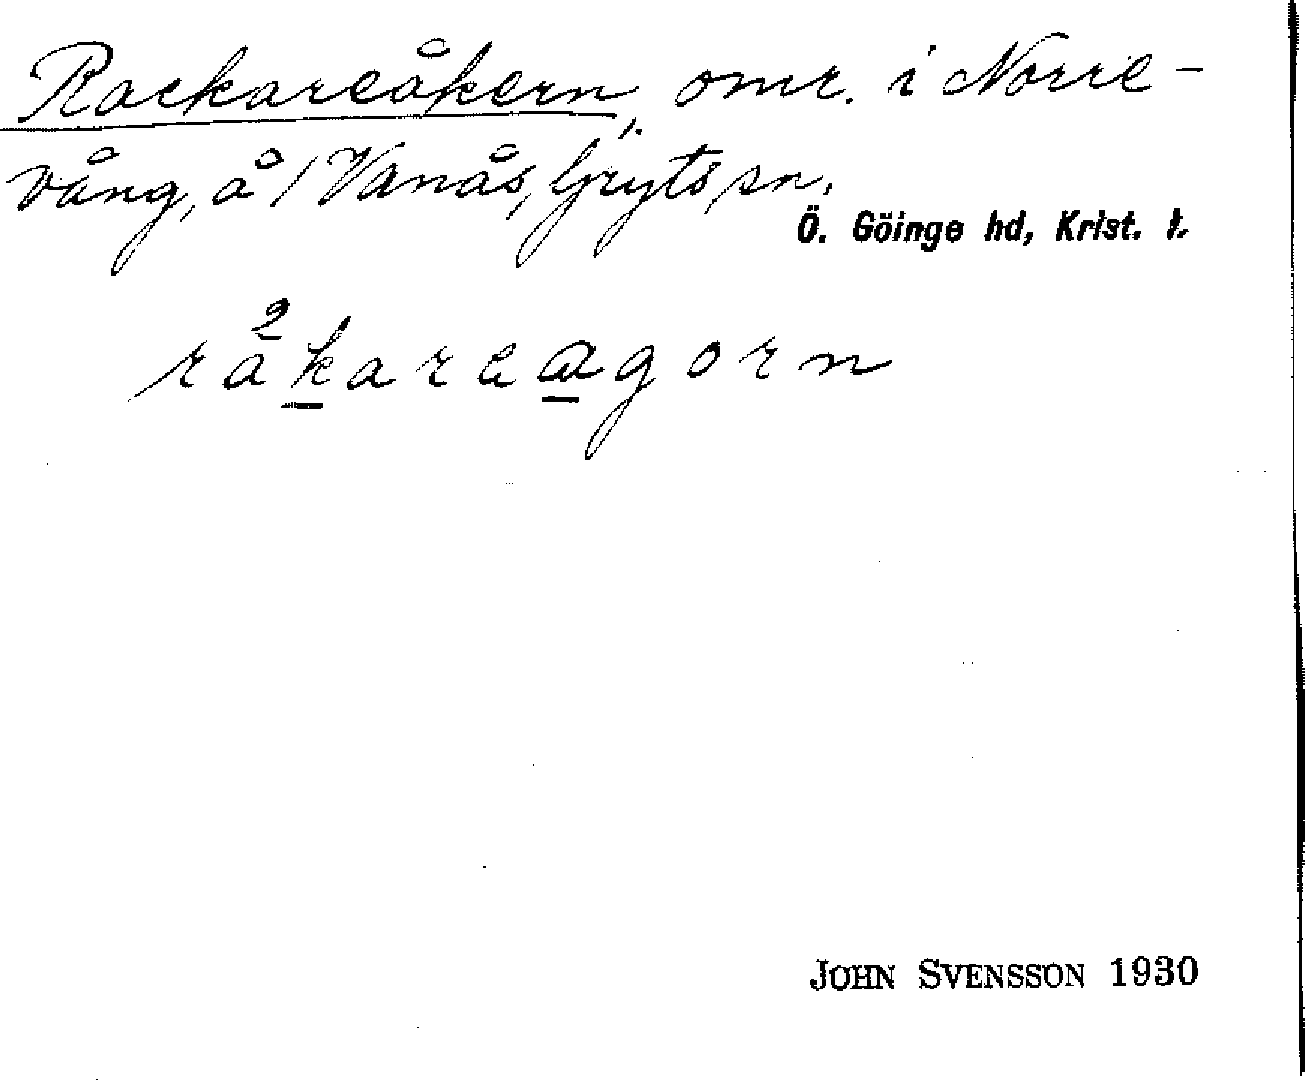 Rackareåkern, omr. i Norre-
vång, å 1/1 Vanås, Gryts sn.
Ö. Göinge hd, Krist. l.
råkareagorn
JOHN SVENSSON 1930